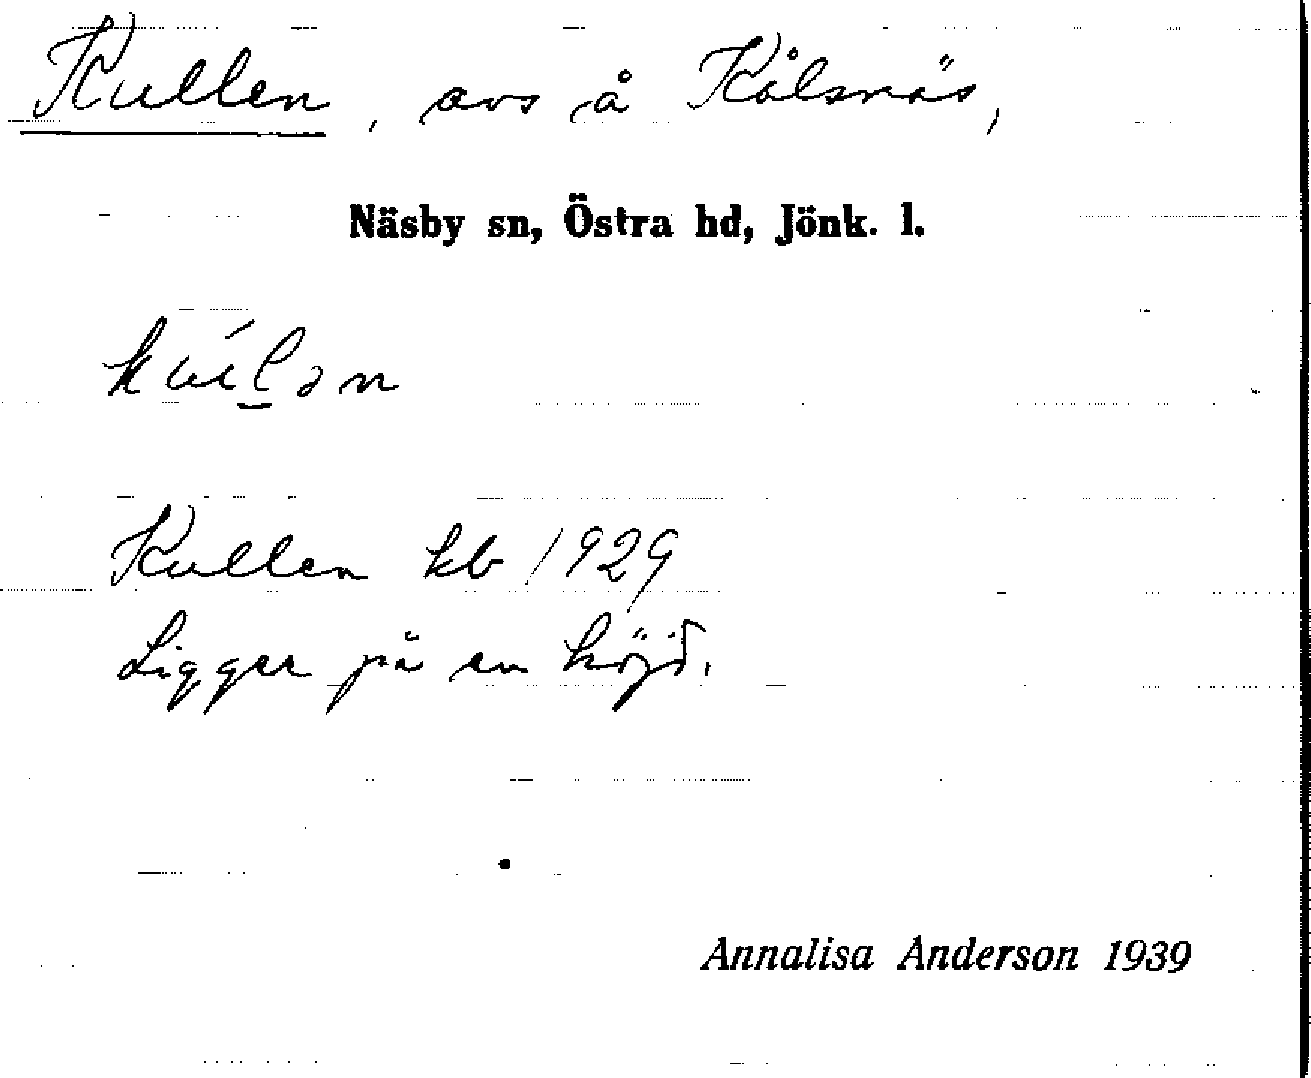 Kullen, avs å Kålsnäs,
Näsby sn, Östra hd, Jönk. l.
Kullen kb 1929
Ligger på en höjd.
Annalisa Anderson 1939